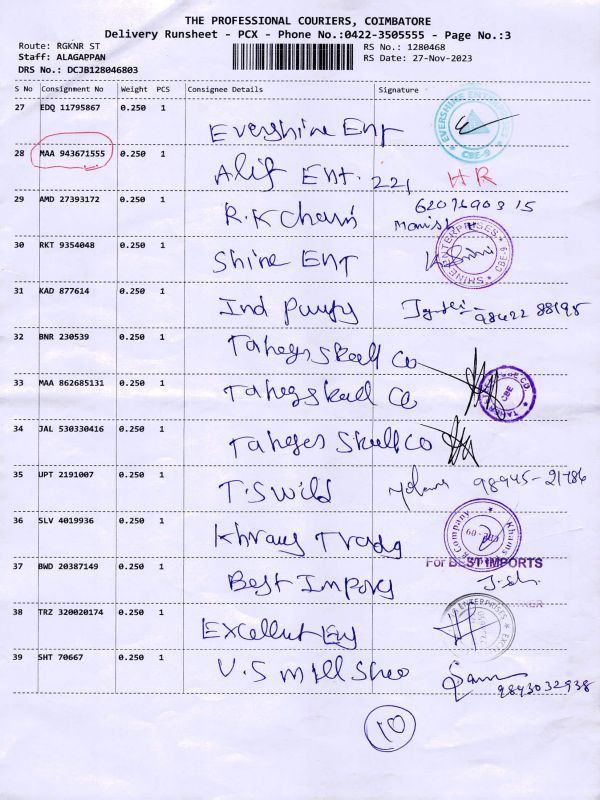 THE PROFESSIONAL COURIERS, COIMBATORE
Delivery Runsheet - PCX - Phone No.:0422-3505555 - Page No.:3
Route: RGKNR ST RS No.: 1280468
Staff: ALAGAPPAN RS Date: 27-Nov-2023
DRS No.: DCJB128046803
S No Consignment No Weight PCS Consignee Details Signature
27 EDQ 11795867 0.250 1
Evershine Ent
EVERSHINE ENTERPRISES CBE-9
28 MAA 943671555 0.250 1
Alif Ent. 221 HR
29 AMD 27393172 0.250 1
R.K Chain Manish
30 RKT 9354048 0.250 1
Shine Ent
SHINE ENTERPRISES CBE-9
31 KAD 877614 0.250 1
Ind 98422 88195
32 BNR 230539 0.250 1
Co
33 MAA 862685131 0.250 1
Co
CBE
34 JAL 530330416 0.250 1
Co
35 UPT 2191007 0.250 1
T.S Wild 98945-21786
36 SLV 4019936 0.250 1
Company
For BEST IMPORTS
37 BWD 20387149 0.250 1
Best
38 TRZ 320020174 0.250 1
ENTERPRISES
39 SHT 70667 0.250 1
V.S Mill 9843032938
10